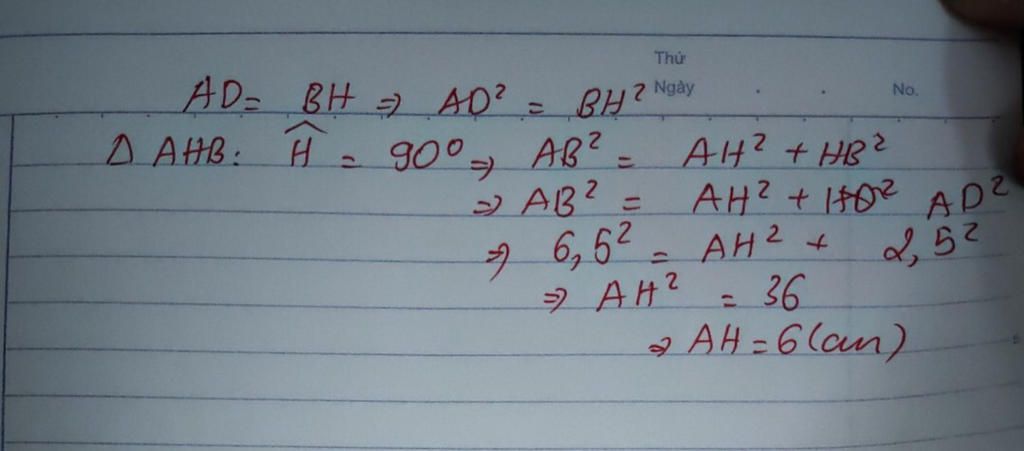 Thứ
Ngày
No.
AD = BH ⇒ AD² = BH²
Δ AHB: Ĥ = 90⁰ ⇒ AB² = AH² + HB²
⇒ AB² = AH² + AD²
⇒ 6,5² = AH² + 2,5²
⇒ AH² = 36
⇒ AH = 6 (cm)